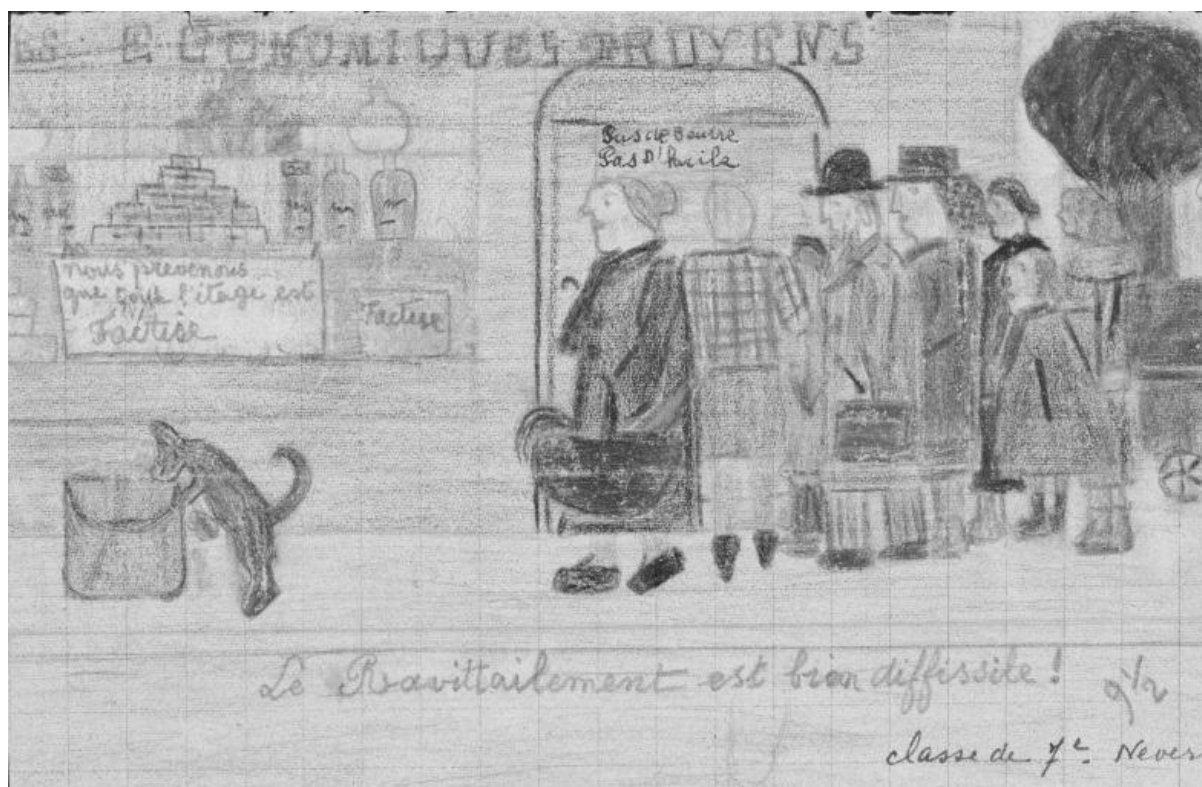 ES ECONOMIQUES TROYENS
Pas de Beurre
Pas D'huile
nous prevenons
que tous l'étage est
Factise
Factise
Le Ravittailement est bien diffissile !
9 1/2
classe de 7e. Never